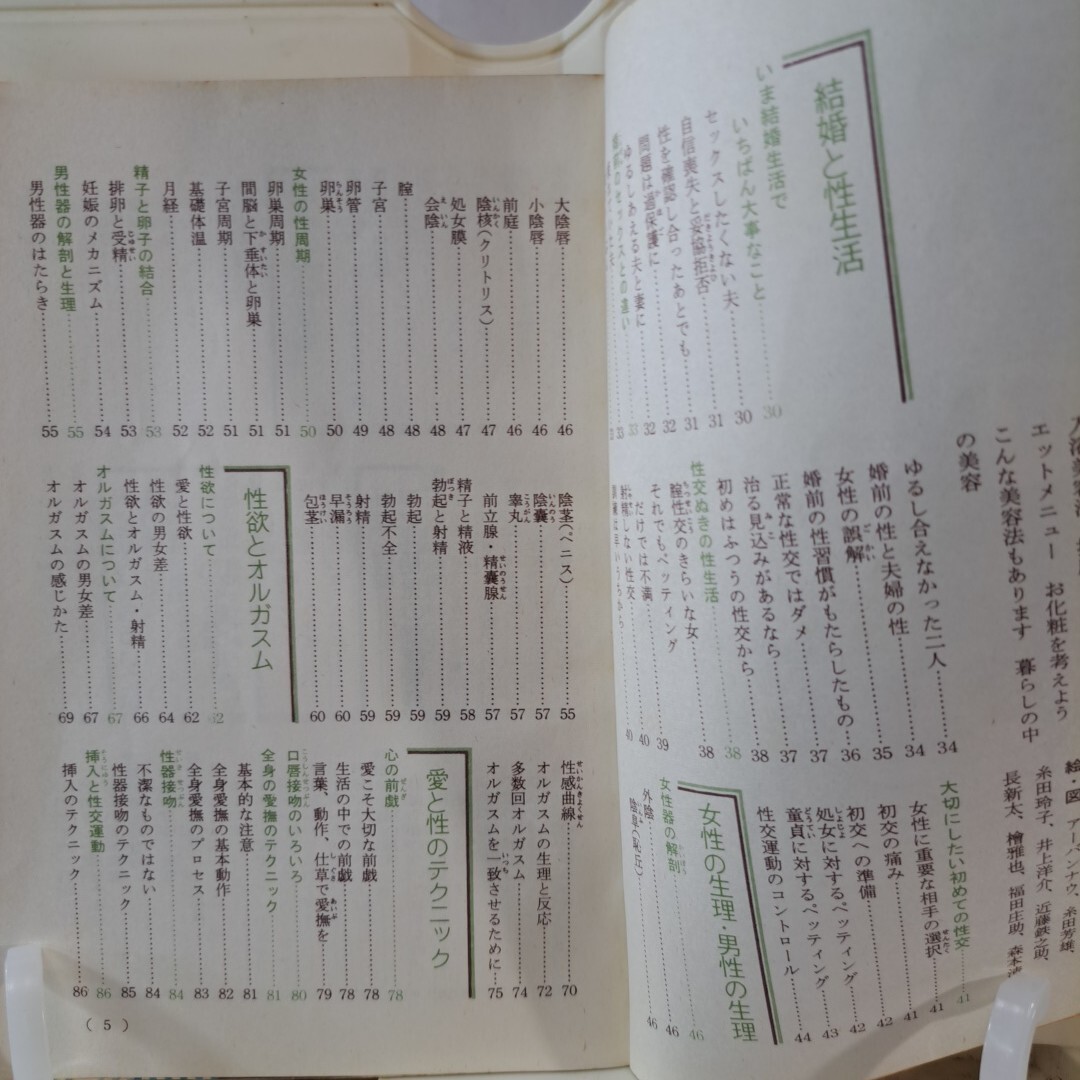 結婚と性生活
いま結婚生活で
いちばん大事なこと 30
セックスしたくない夫 30
自信喪失と妥協拒否 31
性を確認し合ったあとでも 31
問題は過保護に 32
ゆるしあえる夫と妻に 32
ゆるし合えなかった二人 34
婚前の性と夫婦の性 34
女性の誤解 35
婚前の性習慣がもたらしたもの 36
正常な性交ではダメ 37
治る見込みがあるなら 37
初めはふつうの性交から 38
性交ぬきの性生活 38
腟性交のきらいな女 38
それでもペッティング
だけでは不満 39
射精しない性交 40
大切にしたい初めての性交 41
女性に重要な相手の選択 41
初交の痛み 41
初交への準備 42
処女に対するペッティング 42
童貞に対するペッティング 43
性交運動のコントロール 44
女性の生理・男性の生理
女性器の解剖 46
外陰 46
陰阜(恥丘) 46
エットメニュー お化粧を考えよう
こんな美容法もあります 暮らしの中
の美容
絵・図 アーバンナウ、糸田芳雄、
糸田玲子、井上洋介、近藤鉄之助、
長新太、檜雅也、福田庄助、森本
大陰唇 46
小陰唇 46
前庭 46
陰核(クリトリス) 47
処女膜 47
会陰 48
腟 48
子宮 48
卵管 49
卵巣 50
女性の性周期 50
卵巣周期 51
間脳と下垂体と卵巣 51
子宮周期 51
基礎体温 52
月経 52
精子と卵子の結合 53
排卵と受精 53
妊娠のメカニズム 54
男性器の解剖と生理 55
男性器のはたらき 55
陰茎(ペニス) 55
陰嚢 57
睾丸 57
前立腺・精嚢腺 57
精子と精液 58
勃起と射精 59
勃起 59
勃起不全 59
射精 59
早漏 60
包茎 60
性欲とオルガスム
性欲について 62
愛と性欲 62
性欲の男女差 64
性欲とオルガスム・射精 66
オルガスムについて 67
オルガスムの男女差 67
オルガスムの感じかた 69
性感曲線 70
オルガスムの生理と反応 72
多数回オルガスム 74
オルガスムを一致させるために 75
愛と性のテクニック
心の前戯 78
愛こそ大切な前戯 78
生活の中での前戯 78
言葉、動作、仕草で愛撫を 79
口唇接吻のいろいろ 80
全身の愛撫のテクニック 81
基本的な注意 81
全身愛撫の基本動作 82
全身愛撫のプロセス 83
性器接吻 84
不潔なものではない 84
性器接吻のテクニック 85
挿入と性交運動 86
挿入のテクニック 86
( 5 )